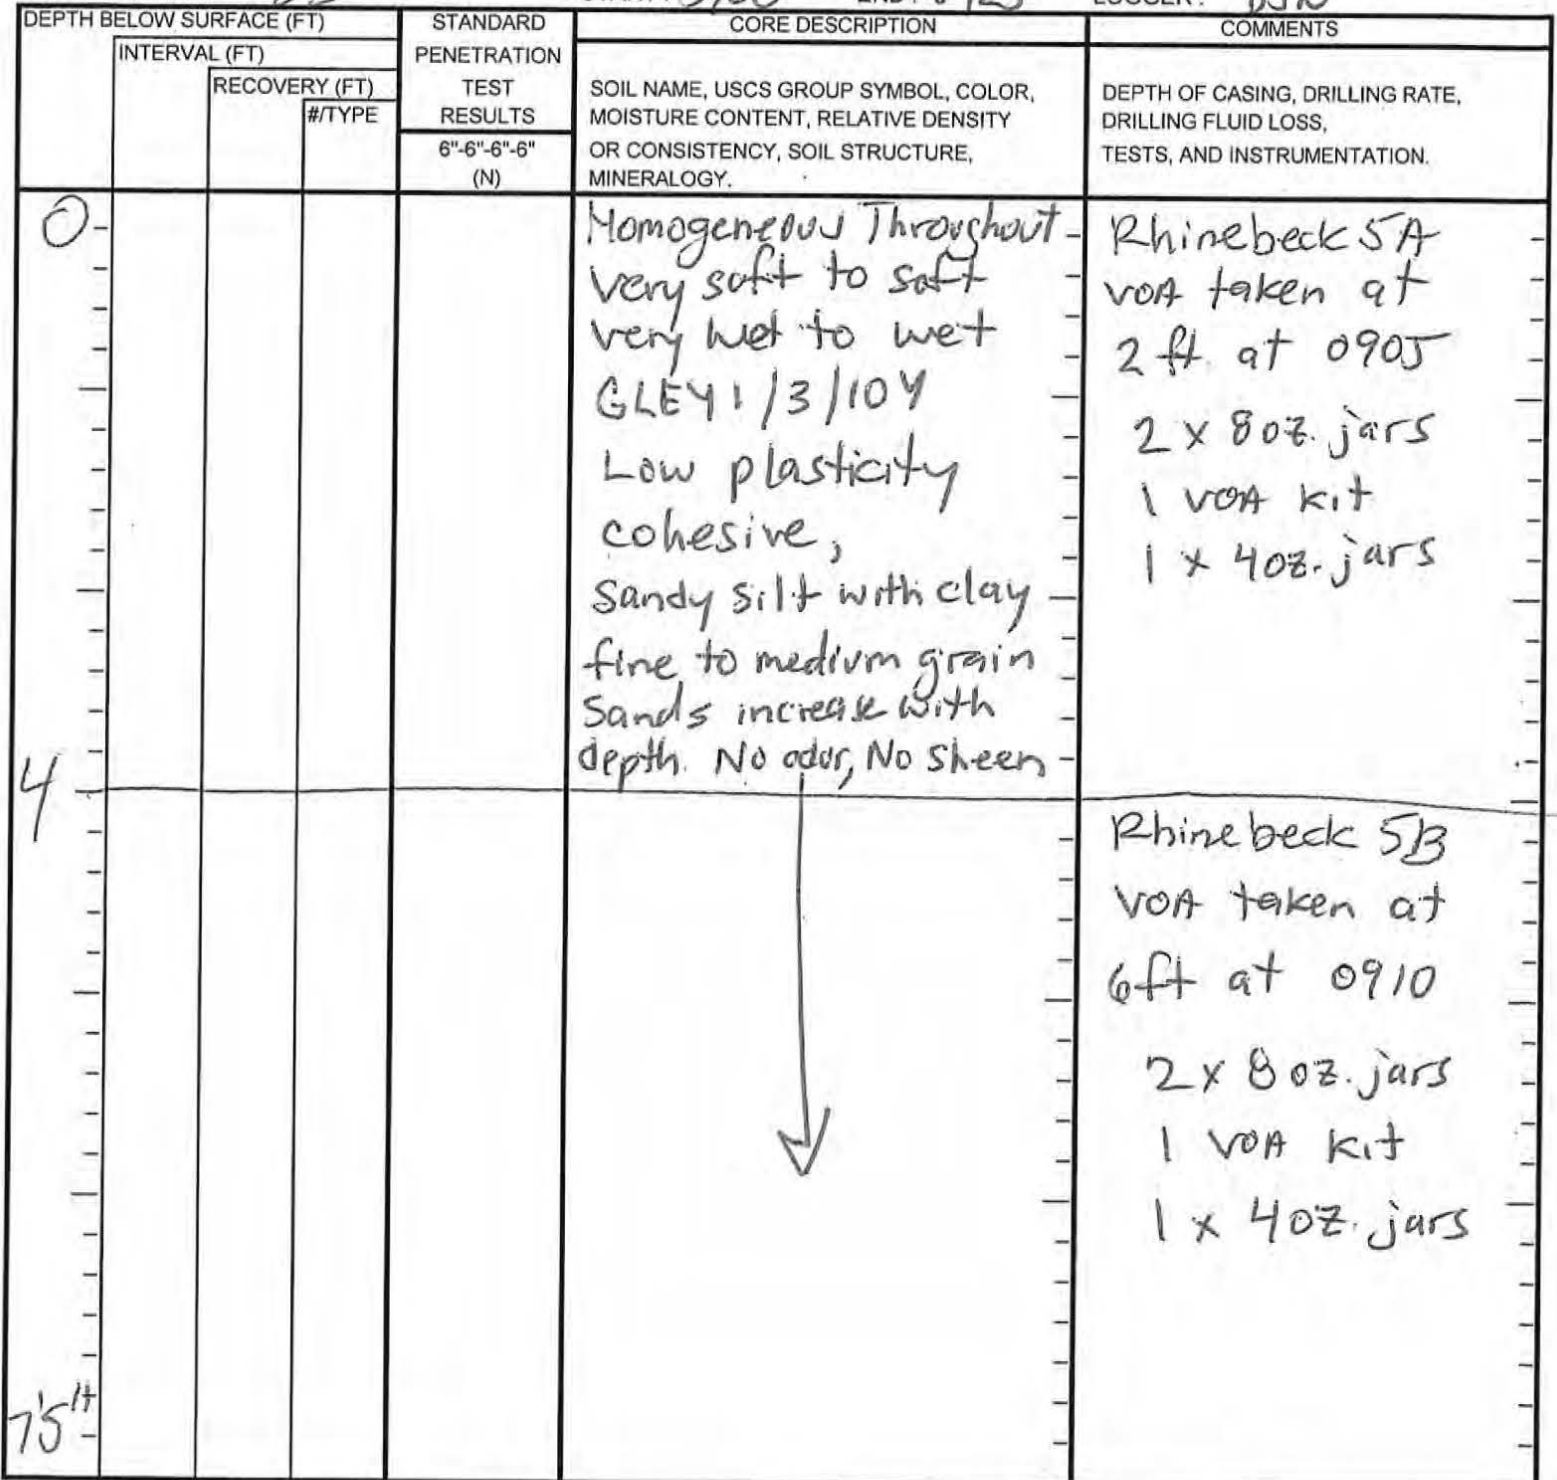 DEPTH BELOW SURFACE (FT)
INTERVAL (FT)
RECOVERY (FT)
#/TYPE
STANDARD
PENETRATION
TEST
RESULTS
6"-6"-6"-6"
(N)
CORE DESCRIPTION
SOIL NAME, USCS GROUP SYMBOL, COLOR,
MOISTURE CONTENT, RELATIVE DENSITY
OR CONSISTENCY, SOIL STRUCTURE,
MINERALOGY.
COMMENTS
DEPTH OF CASING, DRILLING RATE,
DRILLING FLUID LOSS,
TESTS, AND INSTRUMENTATION.
0
Homogeneous Throughout
very soft to soft
very wet to wet
GLEY1/3/10Y
Low plasticity
cohesive,
Sandy silt with clay
fine to medium grain
Sands increase with
depth. No odor, No Sheen
Rhinebeck 5A
VOA taken at
2 ft. at 0905
2 x 8oz. jars
1 VOA kit
1 x 4oz. jars
4
Rhinebeck 5B
VOA taken at
6ft at 0910
2 x 8oz. jars
1 VOA kit
1 x 4oz. jars